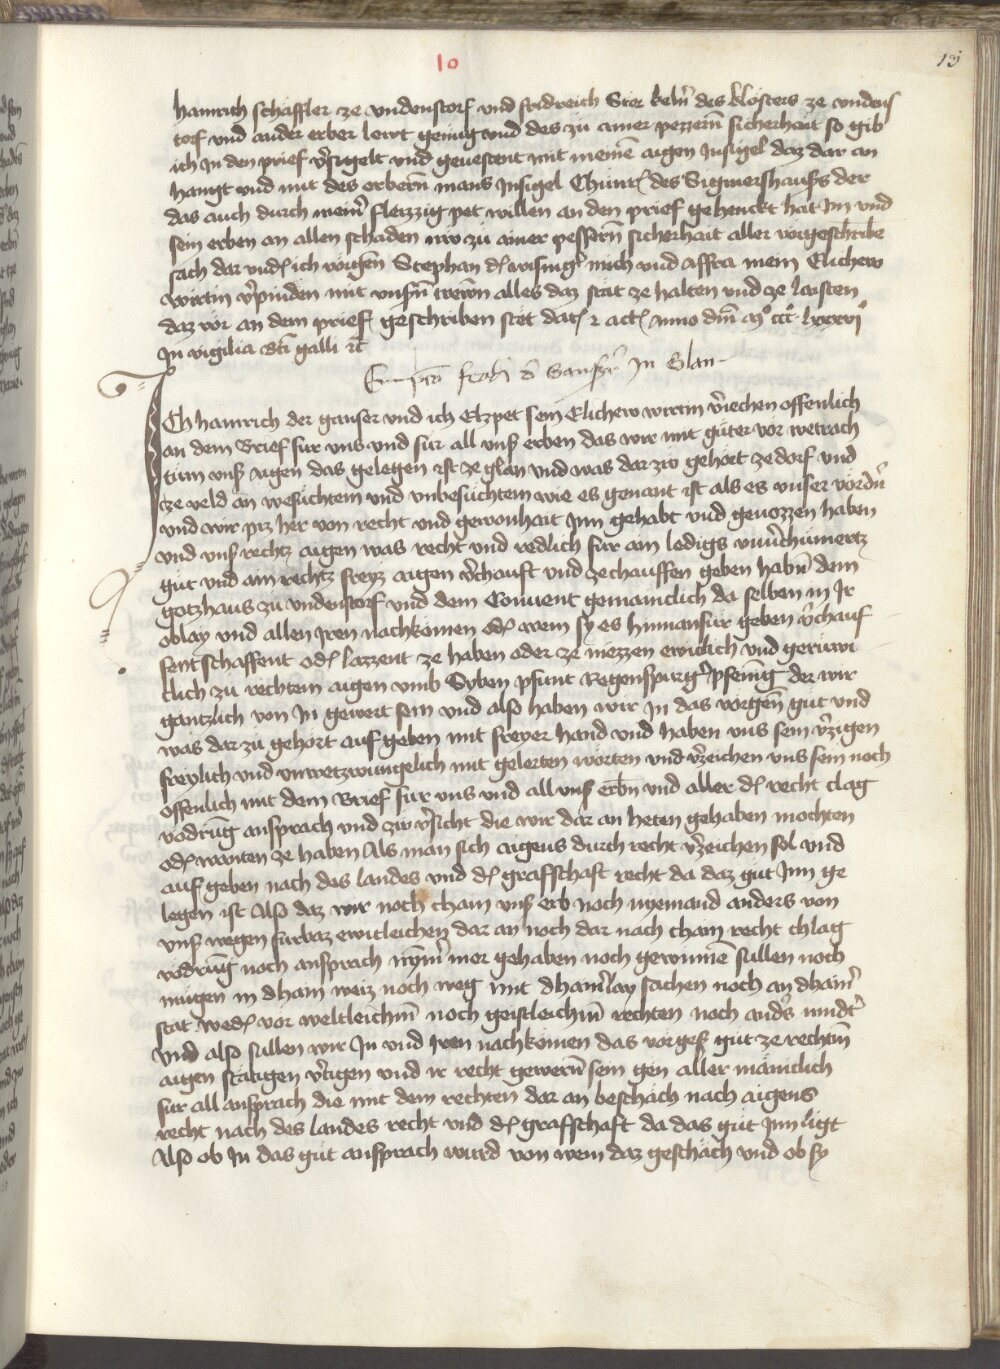 10
13
hainrich schäffler ze vndenstorf vnd fridreich Stör keln̄ des klosters ze vndens
torf vnd ander erber lewt genüg vnd des zu ainer pezzern̄ sicherhait so gib
ich In den prief v̄sigelt vnd geuestent mit meinē aigen Insigel daz dar an
hangt vnd mit des erbern̄ mans Insigel Chünr des Sigmershausers der
das auch durch mein̄ fleizzig pet willen an den prief gehenckt hat Im vnd
sein erben an allen schaden vnd zü ainer pessern̄ sicherhait aller vorgeschribē
sach dar vnd ich vorigen Stephan d mich vnd affra mein Elichew
wirtin v̄pinden mit vnsn̄ trewn alles daz stät ze halten vnd ze laisten
daz vor an dem prief geschriben stet dat & act Anno dm̄ mº cccº lxxxviº
In vigilia Sti galli &c
In Glan
ICh hainrich der ganser vnd ich Elzpet sein Elichew wirtin v̄iechen offenlich
an dem Brief für vns vnd für all vns erben das wir mit güter vor wetrach
tüm vns aigen das gelegen ist ze glan vnd was dar zw gehört ze dorf vnd
ze veld an wesüchtem vnd vnbesüchtem wie es genant ist als es vnser vördn̄
vnd wir piz her von recht vnd gewonhait Inn gehabt vnd genozzen haben
vnd vns rechtz aigen was recht vnd redlich für ain ledigs vnuv̄chümertz
güt vnd ain rechtz freyz aigen v̄chauft vnd ze chauffen geben habn̄ dem
gotzhaus zu vndenstorf vnd dem Conuent gemainclich da selben in Ir
oblay vnd allen Iren nachkömen od wem sy es hinnanfür geben v̄chauf
fent schaffent od lazzent ze haben oder ze niezzen ewiclich vnd gerüwi
clich zü rechtem aigen vmb Syben pfunt Regenspurg pfening der wir
gäntzlich von In gewert sein vnd also haben wir In das vorgen̄ güt vnd
was dar zü gehört auf geben mit freyer hand vnd haben vns sein v̄zigen
freylich vnd vnwetzwüngelich mit gelerten wörten vnd v̄zeichen vns sein noch
offenlich mit dem Brief für vns vnd all vns erbn̄ vnd aller d recht clag
vödrūg ansprach vnd zw v̄sicht die wir dar an heten gehaben mochten
od wanten ze haben Als man sich aigens durch recht v̄zeichen sol vnd
auf geben nach des landes vnd d grafschaft recht da daz güt Inn ge
legen ist Also daz wir noch chain vns erb noch nyemand anders von
vns wegen fürbaz ewicleichen dar an noch dar nach chain recht chlag
vödrūg noch ansprach nȳm̄ mer gehaben noch gewinnē süllen noch
mügen in dhain weiz noch weg mit dhain̄lay sachen noch an dhain̄
stat wed vor weltleichm̄ noch geistleichm̄ rechten noch and̄s nindt̄
vnd also süllen wir In vnd Iren nachkömen das vorgen güt ze rechtm̄
aigen stätigen v̄tigen vnd ir recht gewern̄ sein gen aller mänıclich
für all ansprach die mit dem rechten dar an beschäch nach aigens
recht nach des landes recht vnd d grafschaft da das güt Inn ligt
Also ob In das güt ansprach würd von wem daz geschäch vnd ob sy